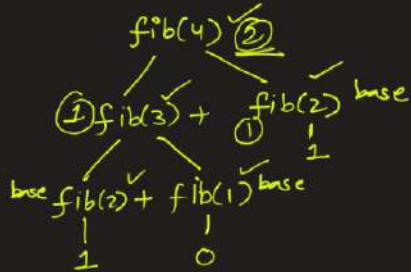 fib(4) ②
① fib(3) + ① fib(2) base
1
base fib(2) + fib(1) base
1 0